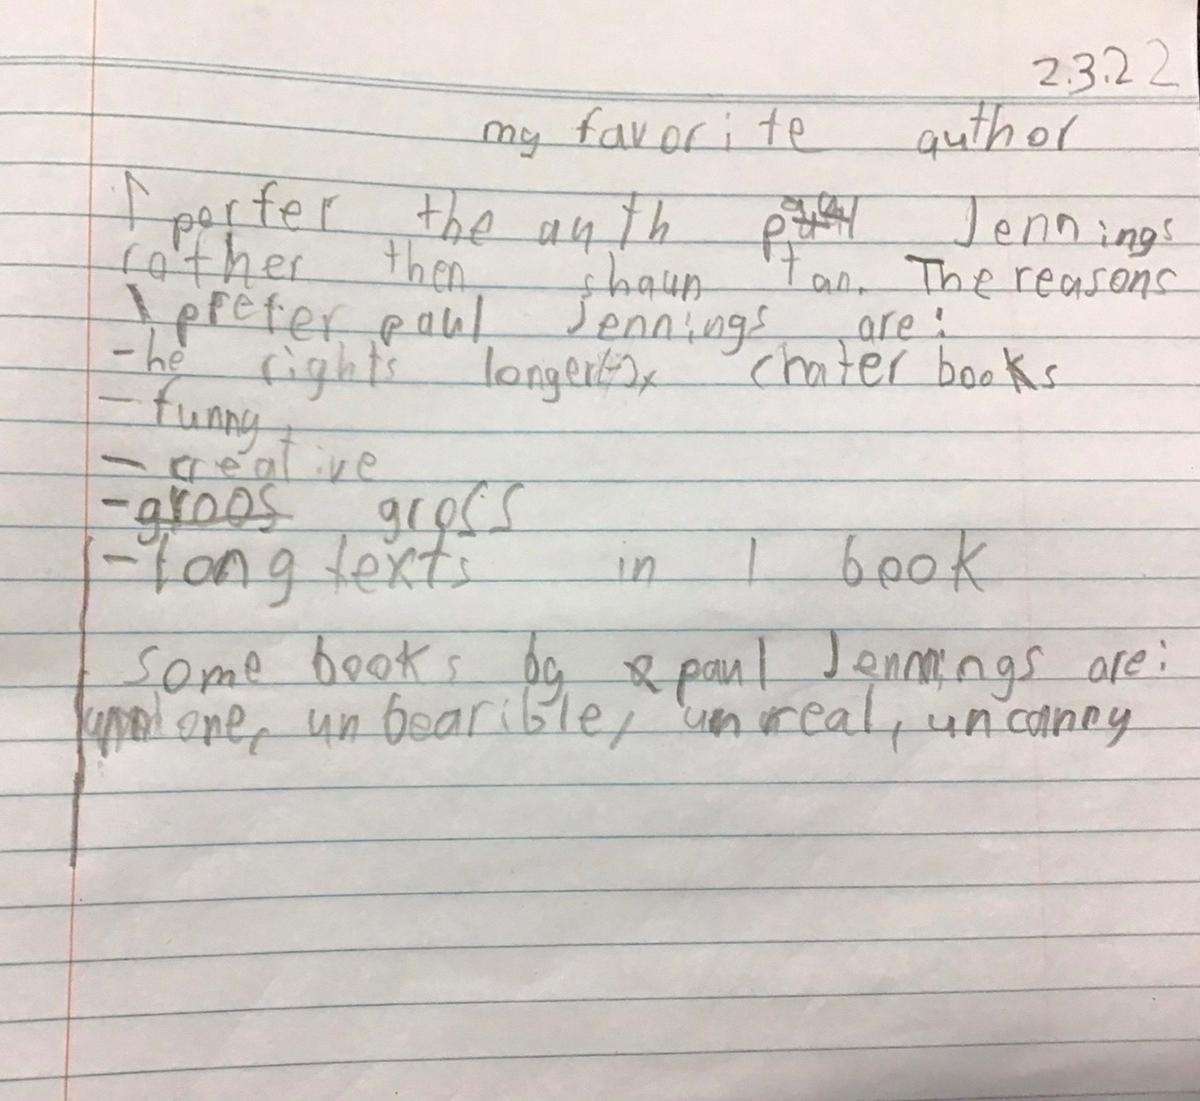 2.3.22
my favorite author
I perfer the auth paul Jennings
rather then shaun tan. The reasons
I prefer paul Jennings are:
-he rights longer chater books
- funny
- creative
-groos gross
-long texts in 1 book
some books by paul Jennings are:
undone, unbearible, unreal, uncanny